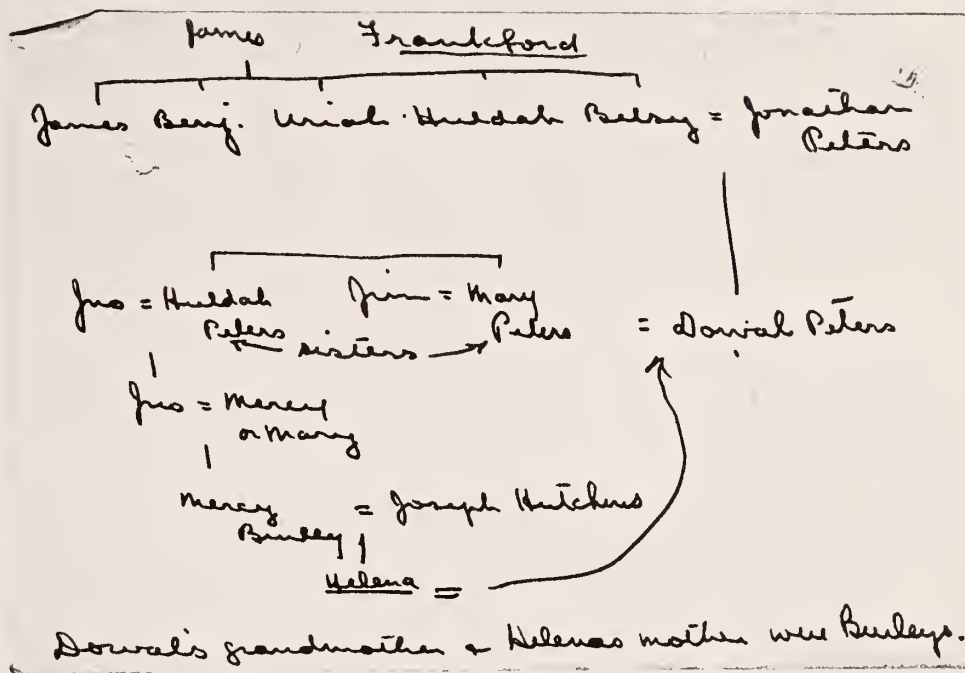 James Frankford
James Benj. Uriah Huldah Betsy = Jonathan
Peters
Jno = Huldah Jim = Mary
Peters sisters Peters = Dorval Peters
Jno = Mercy
or Mary
Mercy = Joseph Hutchins
Burley
Helena =
Dorval's grandmother & Helenas mother were Burleys.